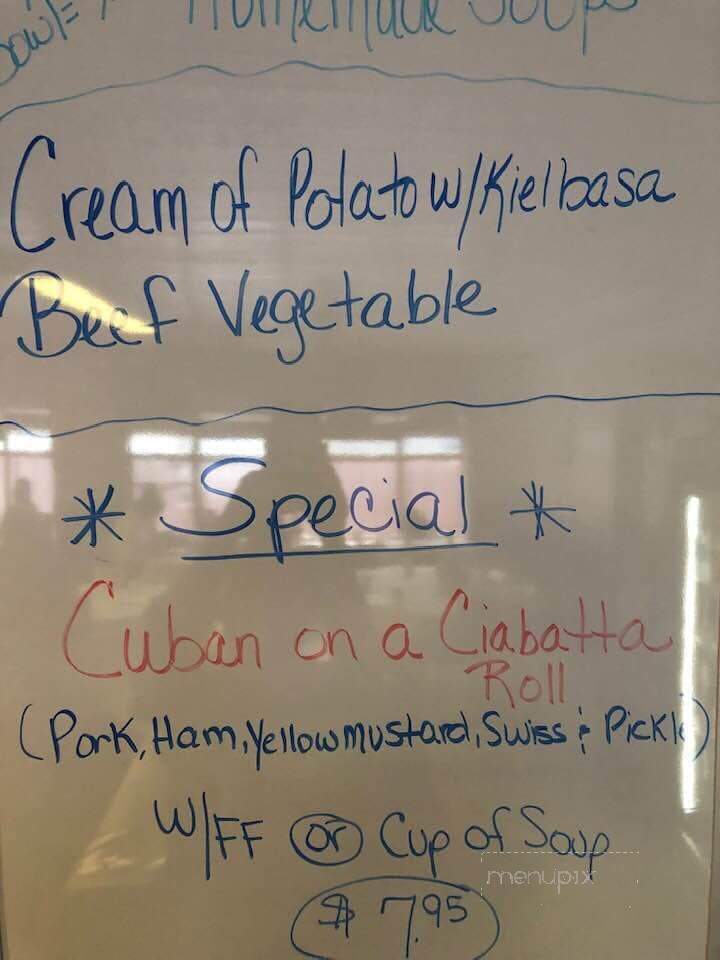 Bowl=
Homemade Soups
Cream of Potato w/Kielbasa
Beef Vegetable
* Special *
Cuban on a Ciabatta
Roll
(Pork, Ham, Yellow mustard, Swiss & Pickle)
W/FF or Cup of Soup
menupix
$ 7.95